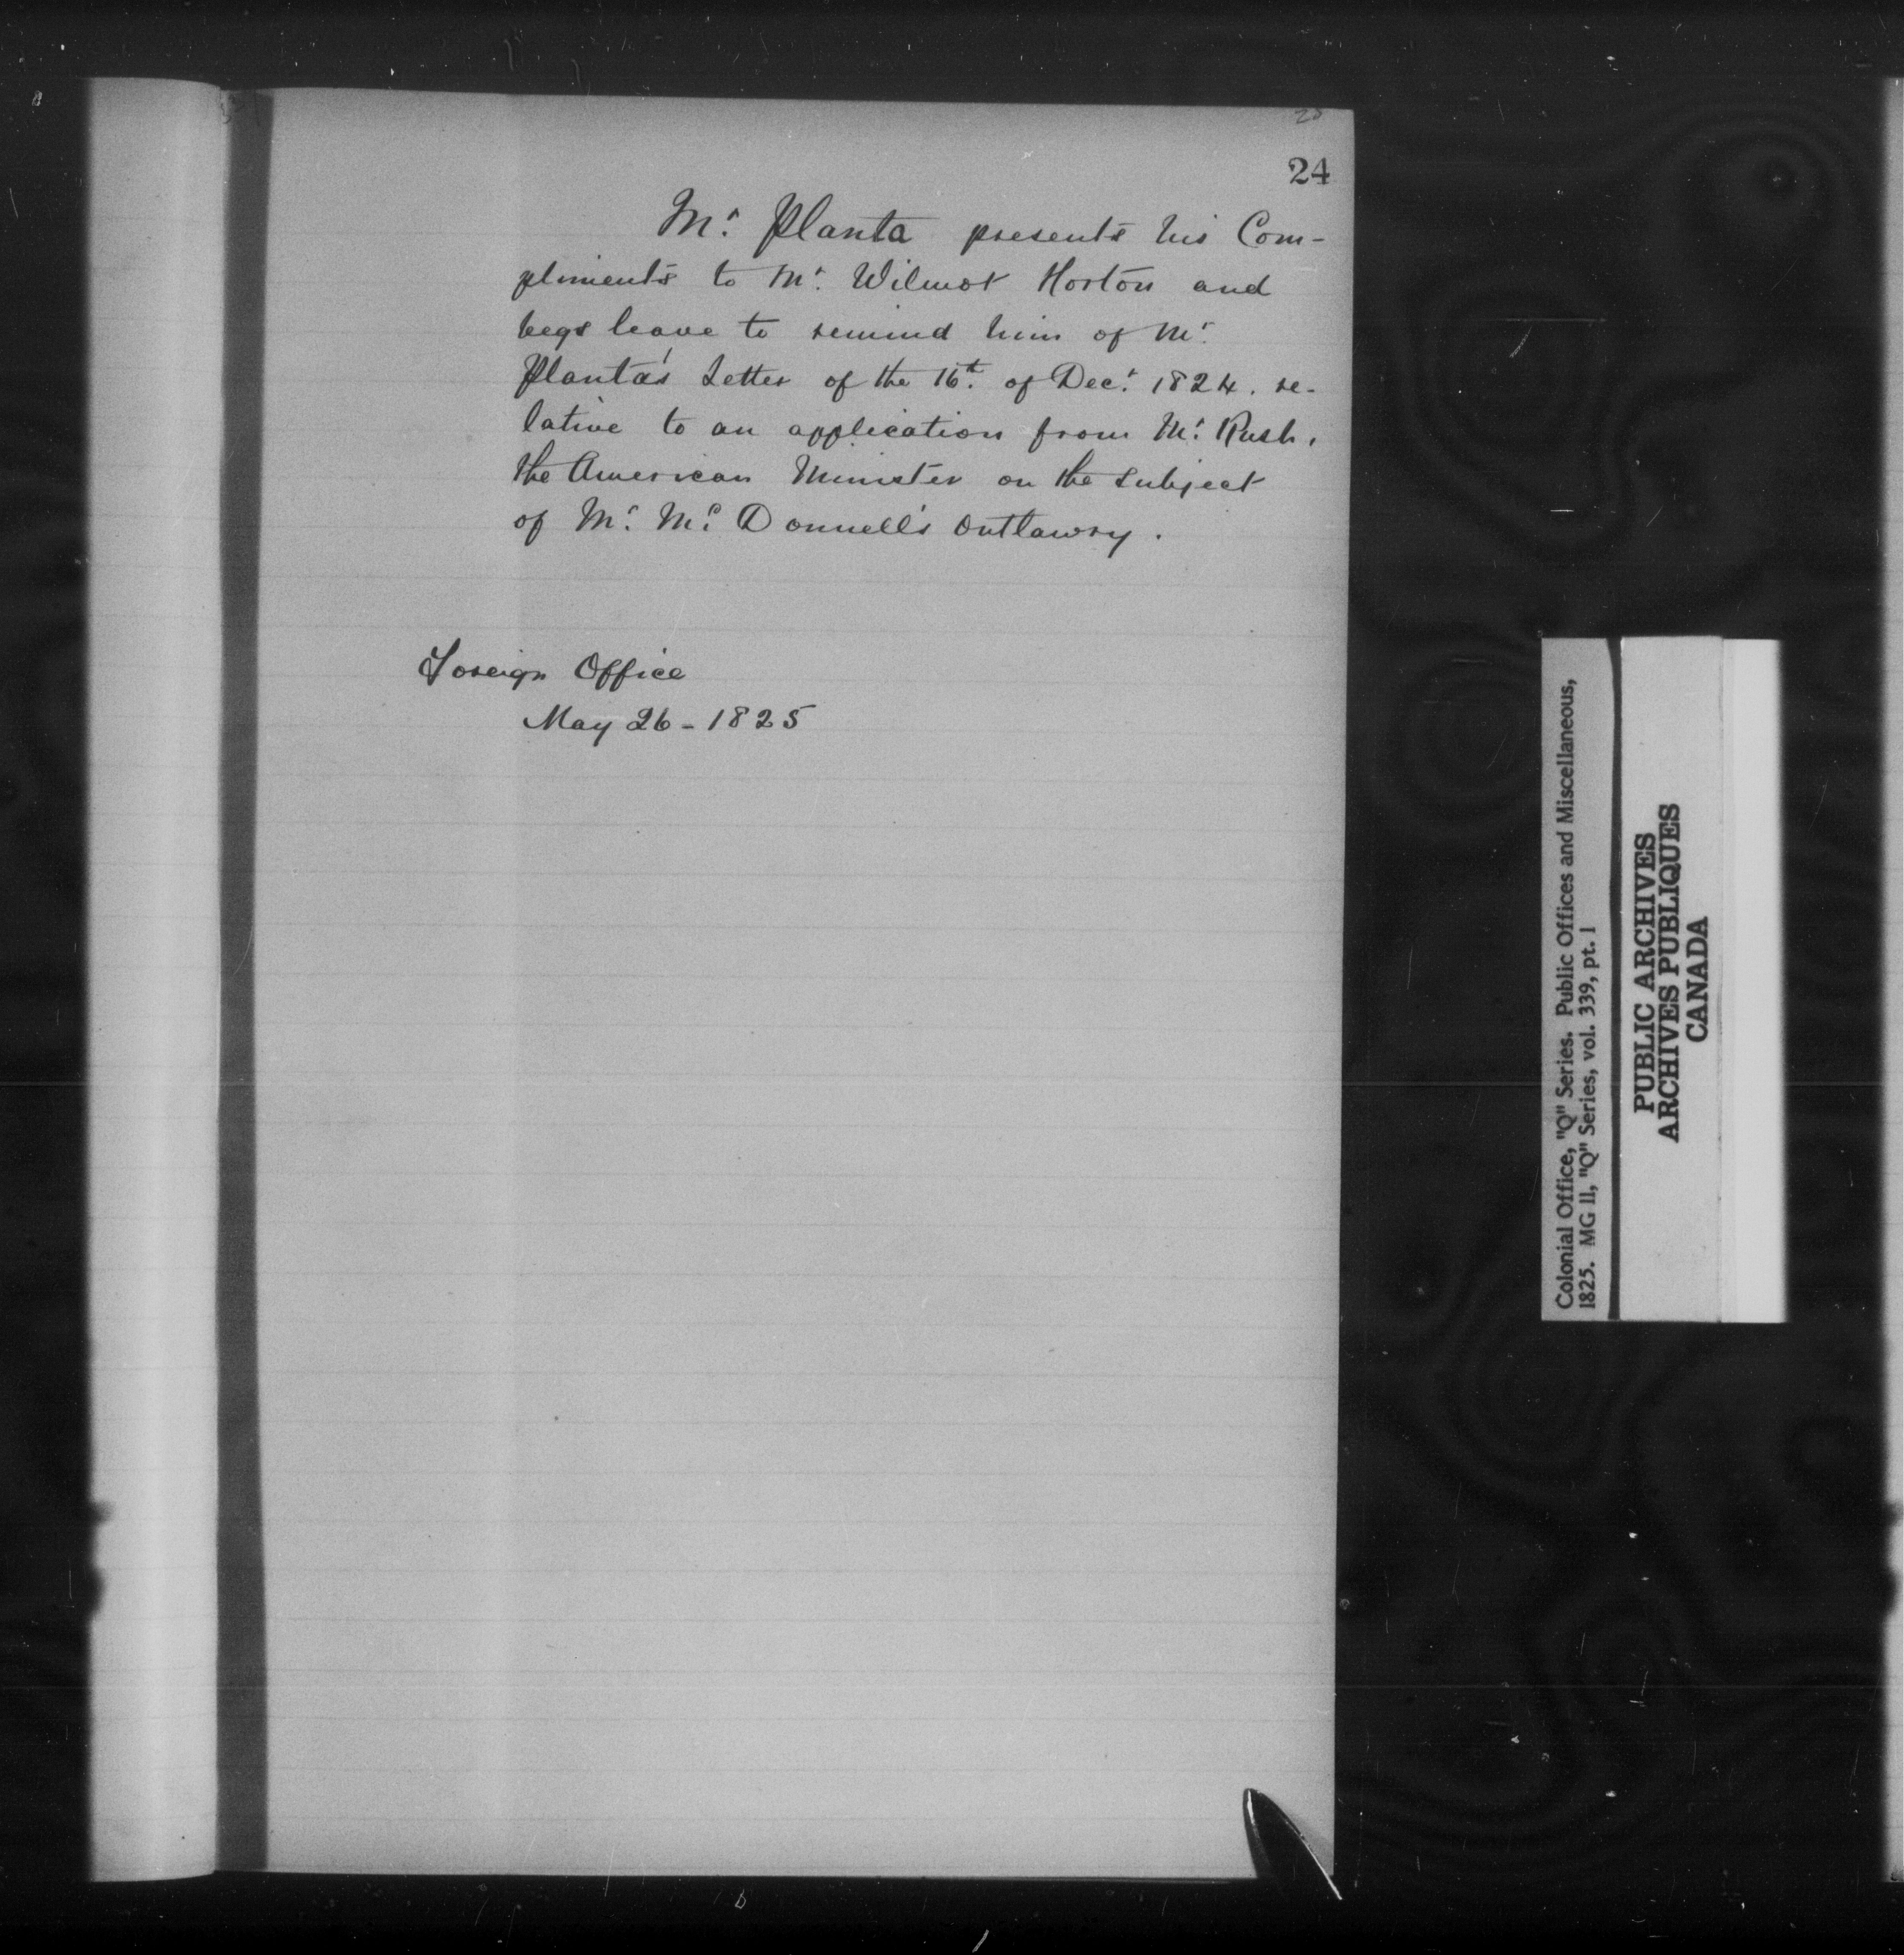 24
Mr. Planta presents his Com-
pliments to Mr. Wilmot Horton and
begs leave to remind him of Mr.
Planta's Letter of the 16th. of Decr. 1824. re-
lative to an application from Mr. Rush,
the American Minister on the subject
of Mr. Mc. Donnell's Outlawry.
Foreign Office
May 26 - 1825
Colonial Office, "Q" Series. Public Offices and Miscellaneous,
1825. MG 11, "Q" Series, vol. 339, pt. 1
PUBLIC ARCHIVES
ARCHIVES PUBLIQUES
CANADA